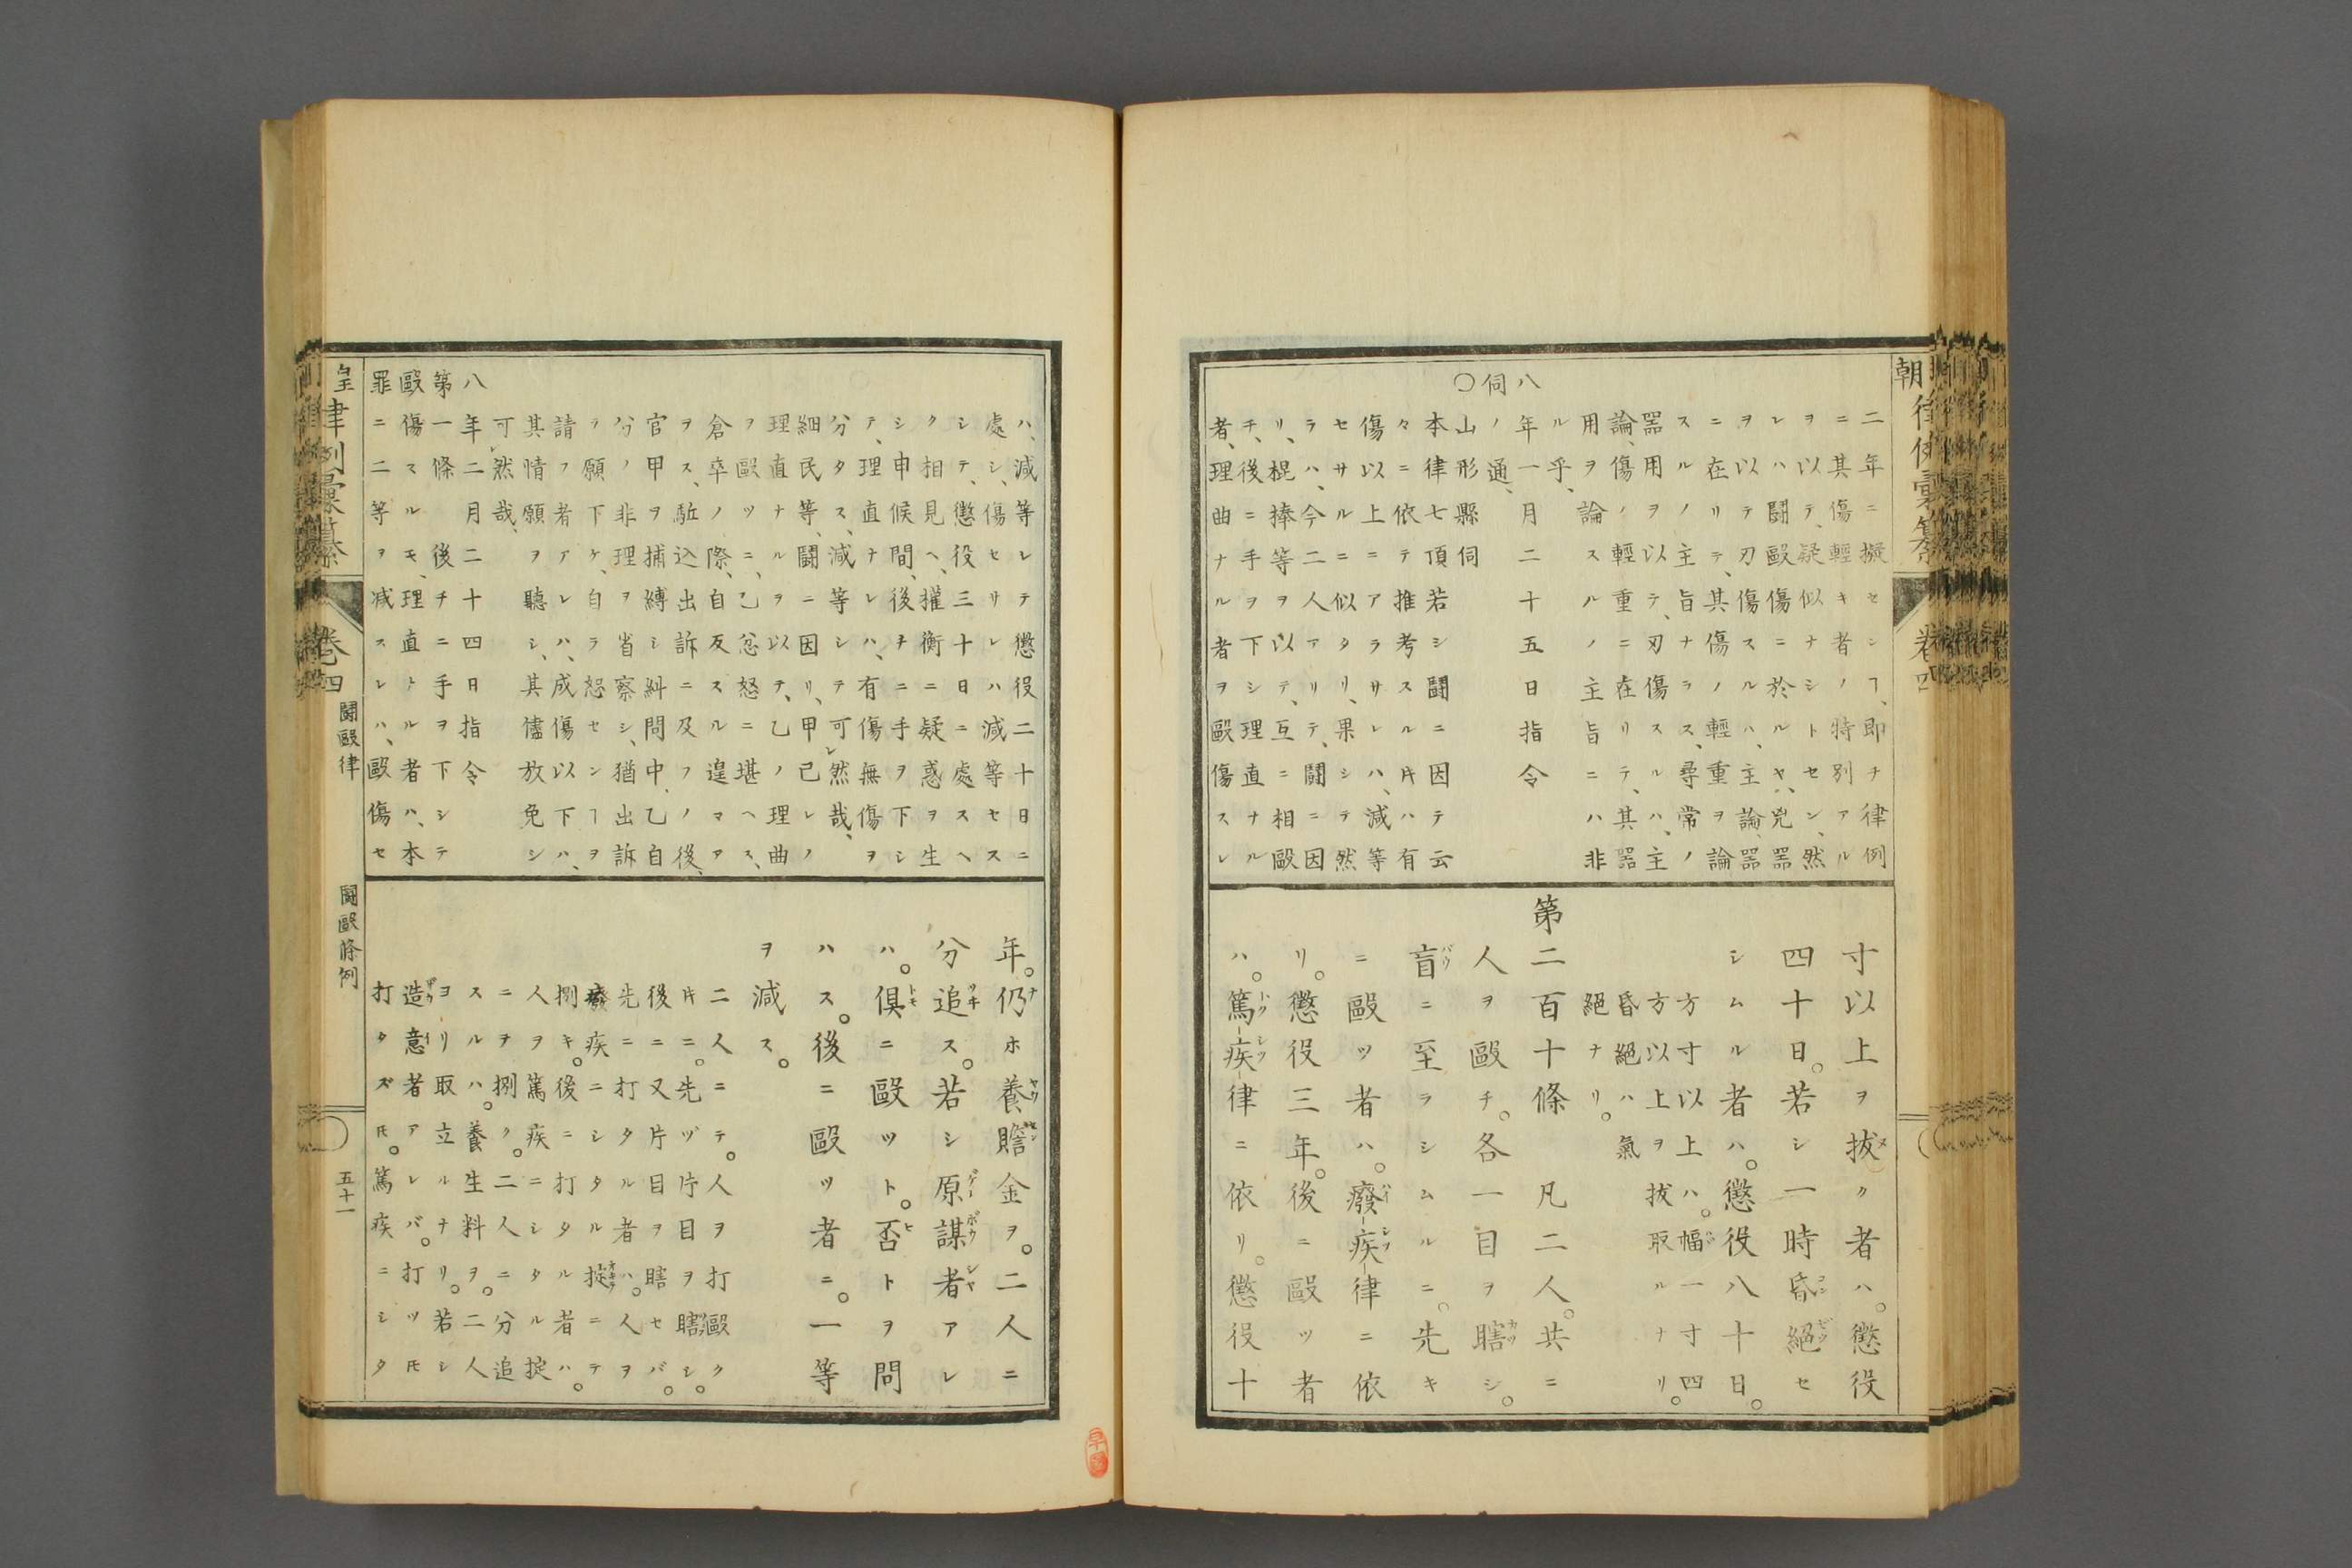 朝律例彙纂 卷四
二年ニ擬セシヿ、即チ律例
ニ其傷輕キ者ノ特別アル
ヲ以テ、疑似ナシトセン、然
レハ鬪毆傷ニ於ルヤ、兇器
ヲ以テ刃傷スルハ、主論、器
ニ在リテ、其傷ノ輕重ヲ論
スルノ主旨ナラス、尋常ノ
器用ヲ以テ、刃傷スルハ、主
論、傷ノ輕重ニ在リテ、其器
用ヲ論スルノ主旨ニハ非
ル乎、
八年一月二十五日指令
伺ノ通、
〇山形縣伺
本律七頂若シ鬪ニ因テ云
々ニ依テ推考スル片ハ有
傷以上ニアラサレハ、減等
セサルニ似タリ、果シテ然
ラハ、今二人アリテ、鬪ニ因
リ、棍捧等ヲ以テ、互ニ相毆
チ、後ニ手ヲ下シテ理直ナル
者、理曲ナル者ヲ毆傷スレ
寸以上ヲ拔ク者ハ。懲役
四十日。若シ一時昏絕セ
シムル者ハ。懲役八十日。
方寸以上ハ。幅一寸四
方以上ヲ拔取ルナリ。
昏絕ハ氣
絕ナリ。
第二百十條 凡二人。共ニ
人ヲ毆チ。各一目ヲ瞎シ。
盲ニ至ラシムルニ。先キ
ニ毆ツ者ハ。廢疾律ニ依
リ。懲役三年。後ニ毆ツ者
ハ。篤疾律ニ依リ。懲役十
ハ、減等レテ懲役二十日ニ
處シ、傷セリレハ減等セス
シテ、懲役三十日ニ處スヘ
ク相見ヘ、權衡ニ疑惑ヲ生
シ申候間、後チニ手ヲ下シ
テ、理直ナレハ、有傷無傷ヲ
分タス、減等シテ可レ然哉、
細民等、鬪ニ因リ、甲已レノ
理直ナルヲ以テ、乙ノ理曲
ヲ毆ツニ、乙忿怒ニ堪ヘス、
倉卒ノ際、自反スルニ遑マア
ヲス、駈込出訴ニ及フノ後、
官甲ヲ捕縛シ糾問中、乙自
分ノ非理ヲ省察シ、猶出訴
ラ願下ケ、自ラ怒センヿヲ
請フ者アレハ、成傷以下ハ、
其情願ヲ聽シ、其儘放免シ
可レ然哉、
八年二月二十四日指令
第一條 後チニ手ヲ下シテ
毆傷スルモ、理直トルル者ハ、本
罪ニ二等ヲ減スレハ、毆傷セ
年。仍ホ養贍金ヲ。二人ニ
分追ス。若シ原謀者アレ
ハ。俱ニ毆ツト。否トヲ問
ハス。後ニ毆ツ者ニ。一等
ヲ減ス。
二人ニテ。人ヲ打毆ク
片ニ。先ヅ片目ヲ瞎シ。
後ニ又片目ヲ瞎セバ。
先ニ打タル者ハ。人ヲ
癈疾ニシタル掟ニテ
捌キ。後ニ打タル者ハ。
人ヲ篤疾ニシタル掟
ニテ捌ク。二人ニ分追
スルハ。養生料ヲ。二人
ヨリ取立ルナリ。若シ
造意者アレバ。打ツ𪜈
打タズ𪜈。篤疾ニシタ
皇律例彙纂 卷四 鬪毆律 鬪毆條例 五十一